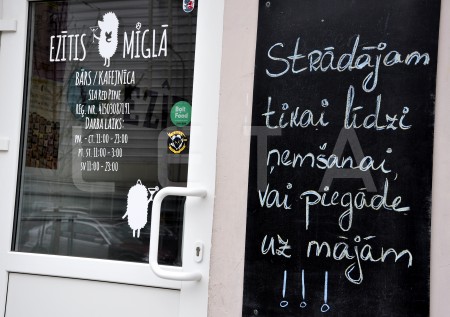 EZĪTIS MĪGLĀ
BĀRS / KAFEJNĪCA
SIA RED PINE
REĢ. NR. 41503087191
DARBA LAIKS:
PN. - CT. 11:00 - 23:00
PT. ST. 11:00 - 3:00
SV 11:00 - 23:00
Strādājam
tikai līdzi
ņemšanai,
vai piegāde
uz mājām
!!!
LETA